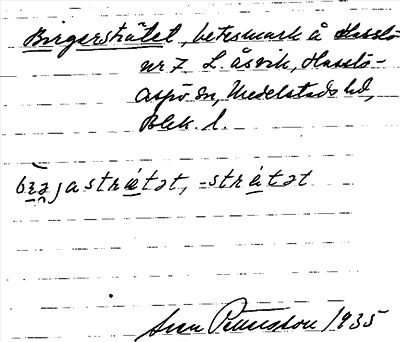 Birgersträtet, betesmark å Hasslö
nr 7 L. åsvik, Hasslö-
aspö sn, Medelstads hd,
Blek. l.
bɪrjastrætət, -strætət
Sven Petersson 1935